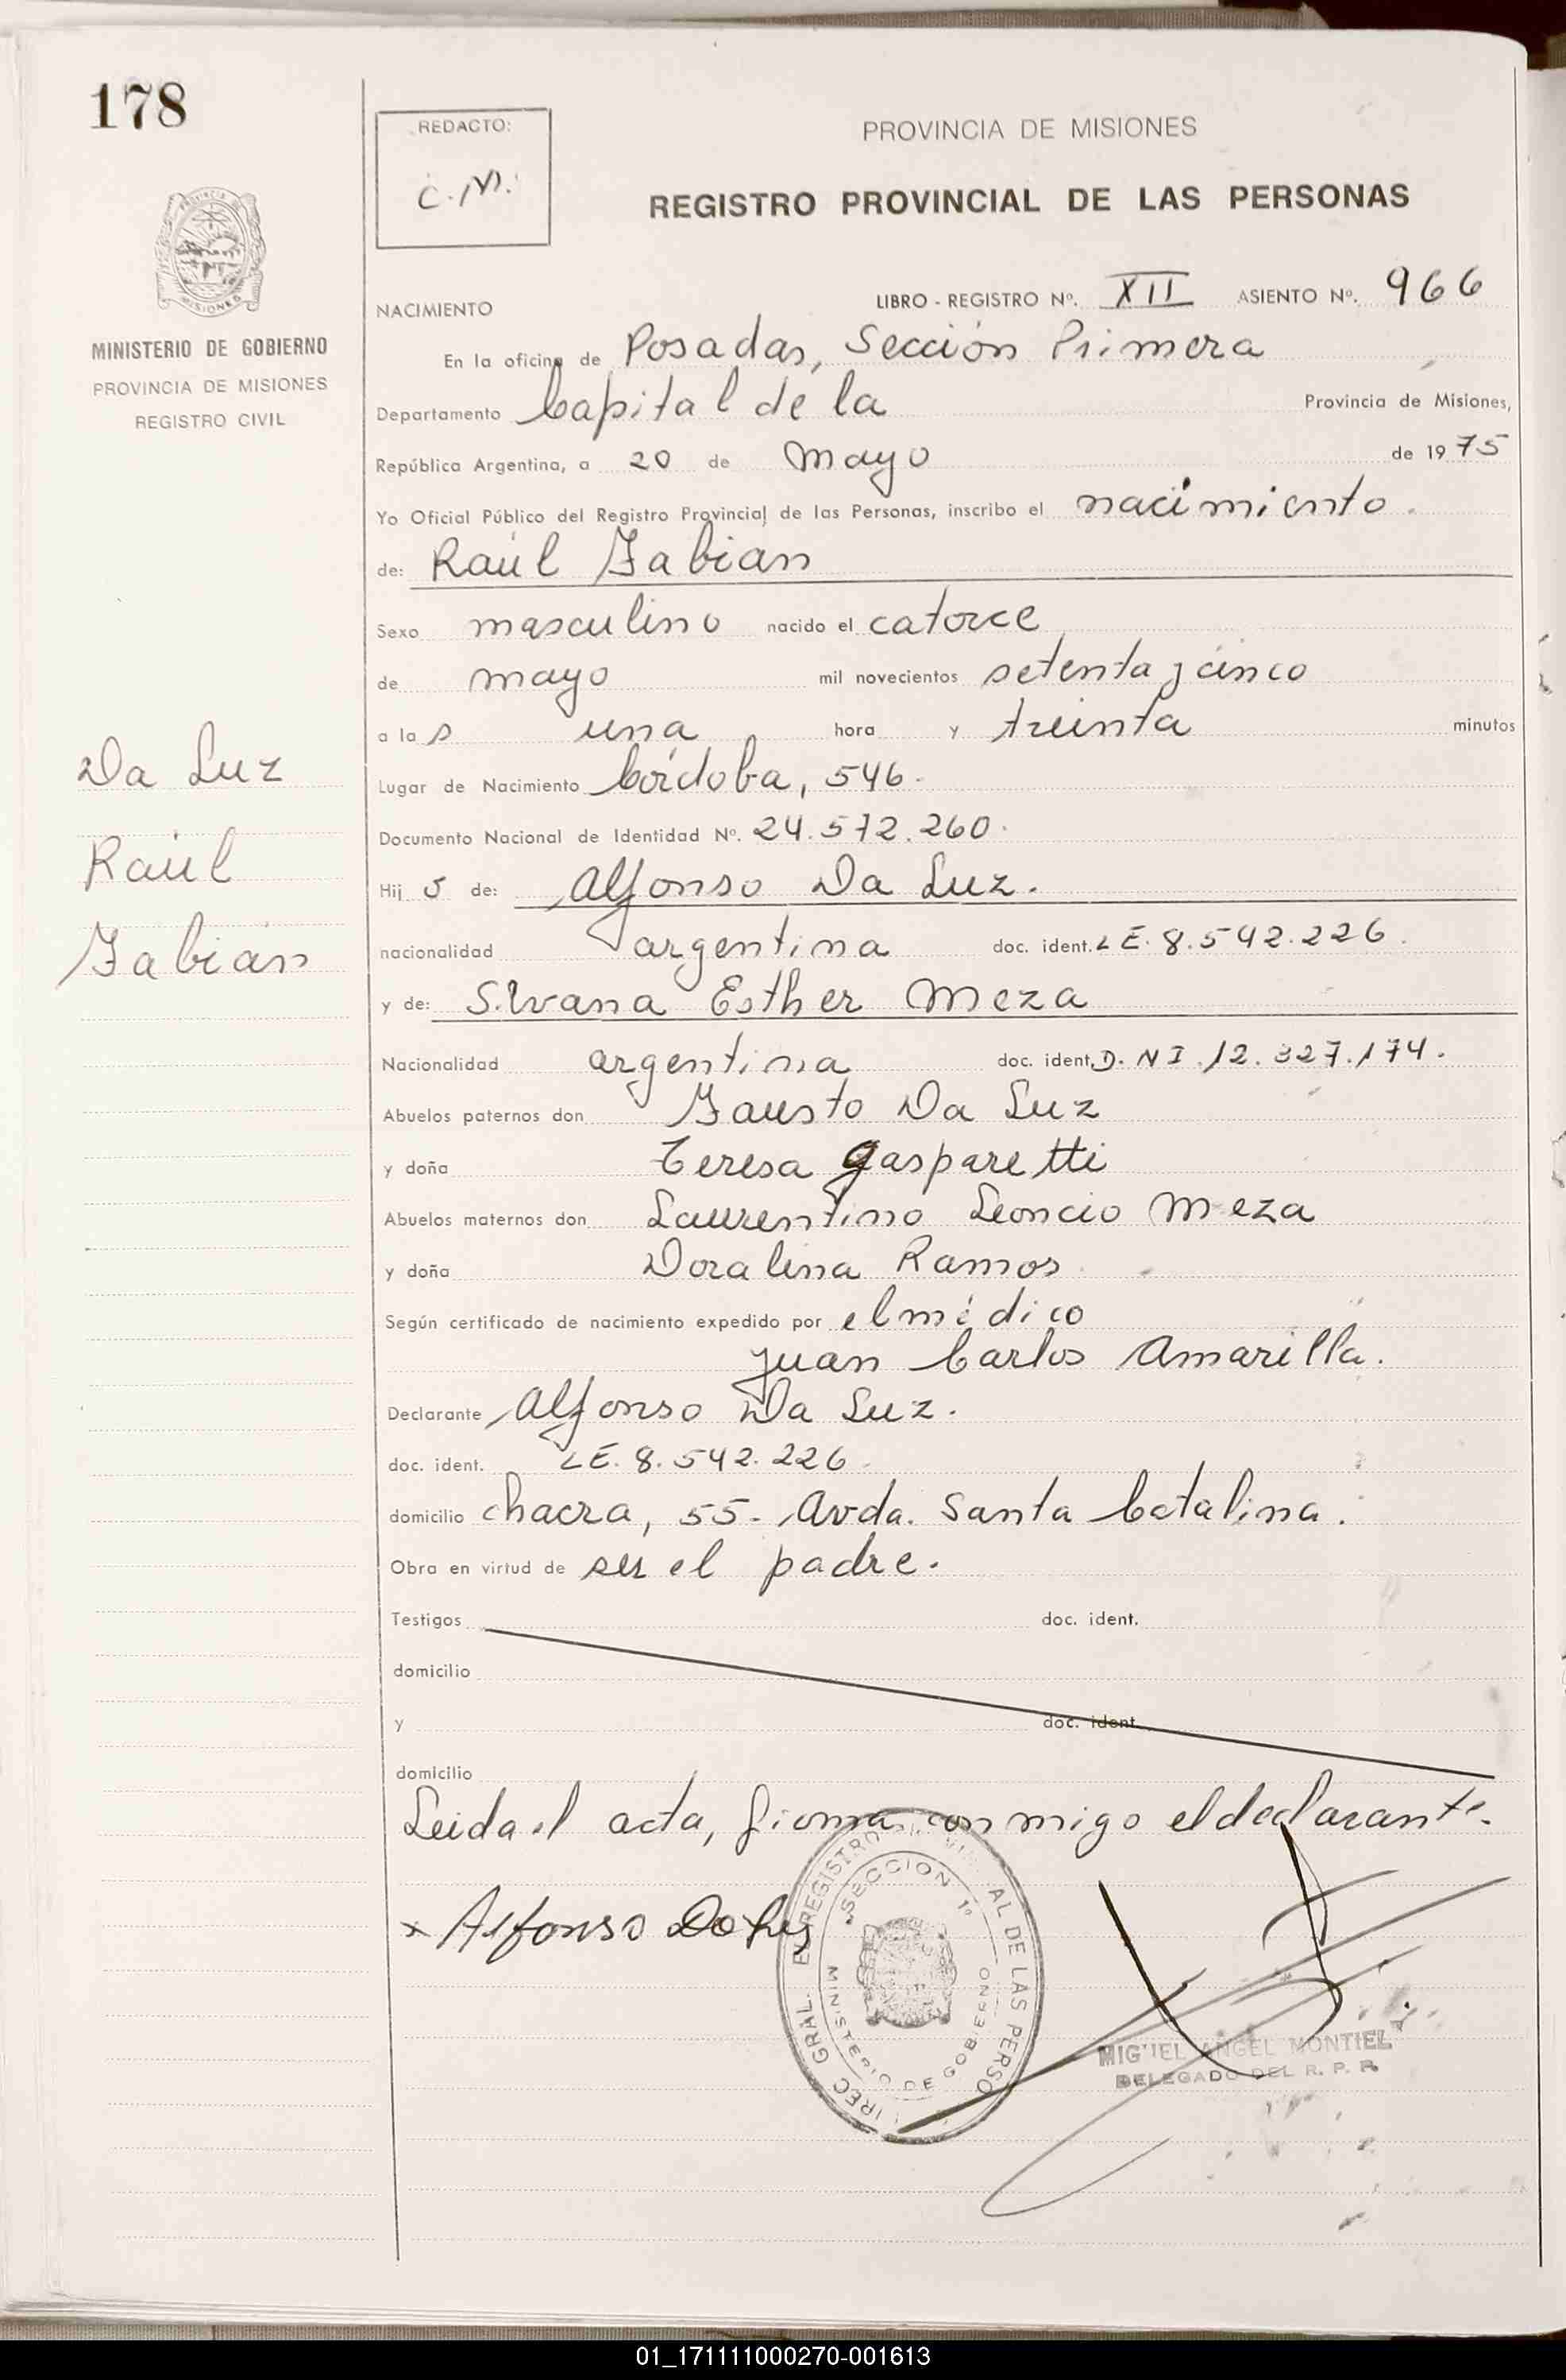 178
REDACTO:
C.M.
PROVINCIA DE MISIONES
REGISTRO PROVINCIAL DE LAS PERSONAS
MISIONES
MINISTERIO DE GOBIERNO
PROVINCIA DE MISIONES
REGISTRO CIVIL
Da Luz
Raúl
Fabian
LIBRO - REGISTRO Nº. XII ASIENTO Nº. 966
NACIMIENTO
En la oficina de Posadas, Sección Primera
Departamento Capital de la Provincia de Misiones,
República Argentina, a 20 de Mayo de 1975
Yo Oficial Público del Registro Provincial de las Personas, inscribo el nacimiento.
de: Raúl Fabian
Sexo masculino nacido el catorce
de mayo mil novecientos setenta y cinco
a la s una hora y treinta minutos
Lugar de Nacimiento Córdoba, 546.
Documento Nacional de Identidad Nº. 24.572.260.
Hij o de: Alfonso Da Luz.
nacionalidad argentina doc. ident. LE. 8.542.226.
y de: Silvana Esther Meza
Nacionalidad argentina doc. ident. D.NI.12.327.174.
Abuelos paternos don Fausto Da Luz
y doña Teresa Gasparetti
Abuelos maternos don Laurentino Leoncio Meza
y doña Doralina Ramos
Según certificado de nacimiento expedido por el médico
Juan Carlos Amarilla.
Declarante Alfonso Da Luz.
doc. ident. LE. 8.542.226.
domicilio chacra, 55- Avda. Santa Catalina.
Obra en virtud de ser el padre.
Testigos doc. ident.
domicilio
y doc. ident.
domicilio
Leida el acta, firma conmigo el declarante.
x Alfonso Da Luz
DIREC GRAL. REGISTRO AL DE LAS PERSO
SECCION 1º
MINISTERIO DE GOBIERNO
MIGUEL ANGEL MONTIEL
DELEGADO DEL R. P. P.
01_171111000270-001613